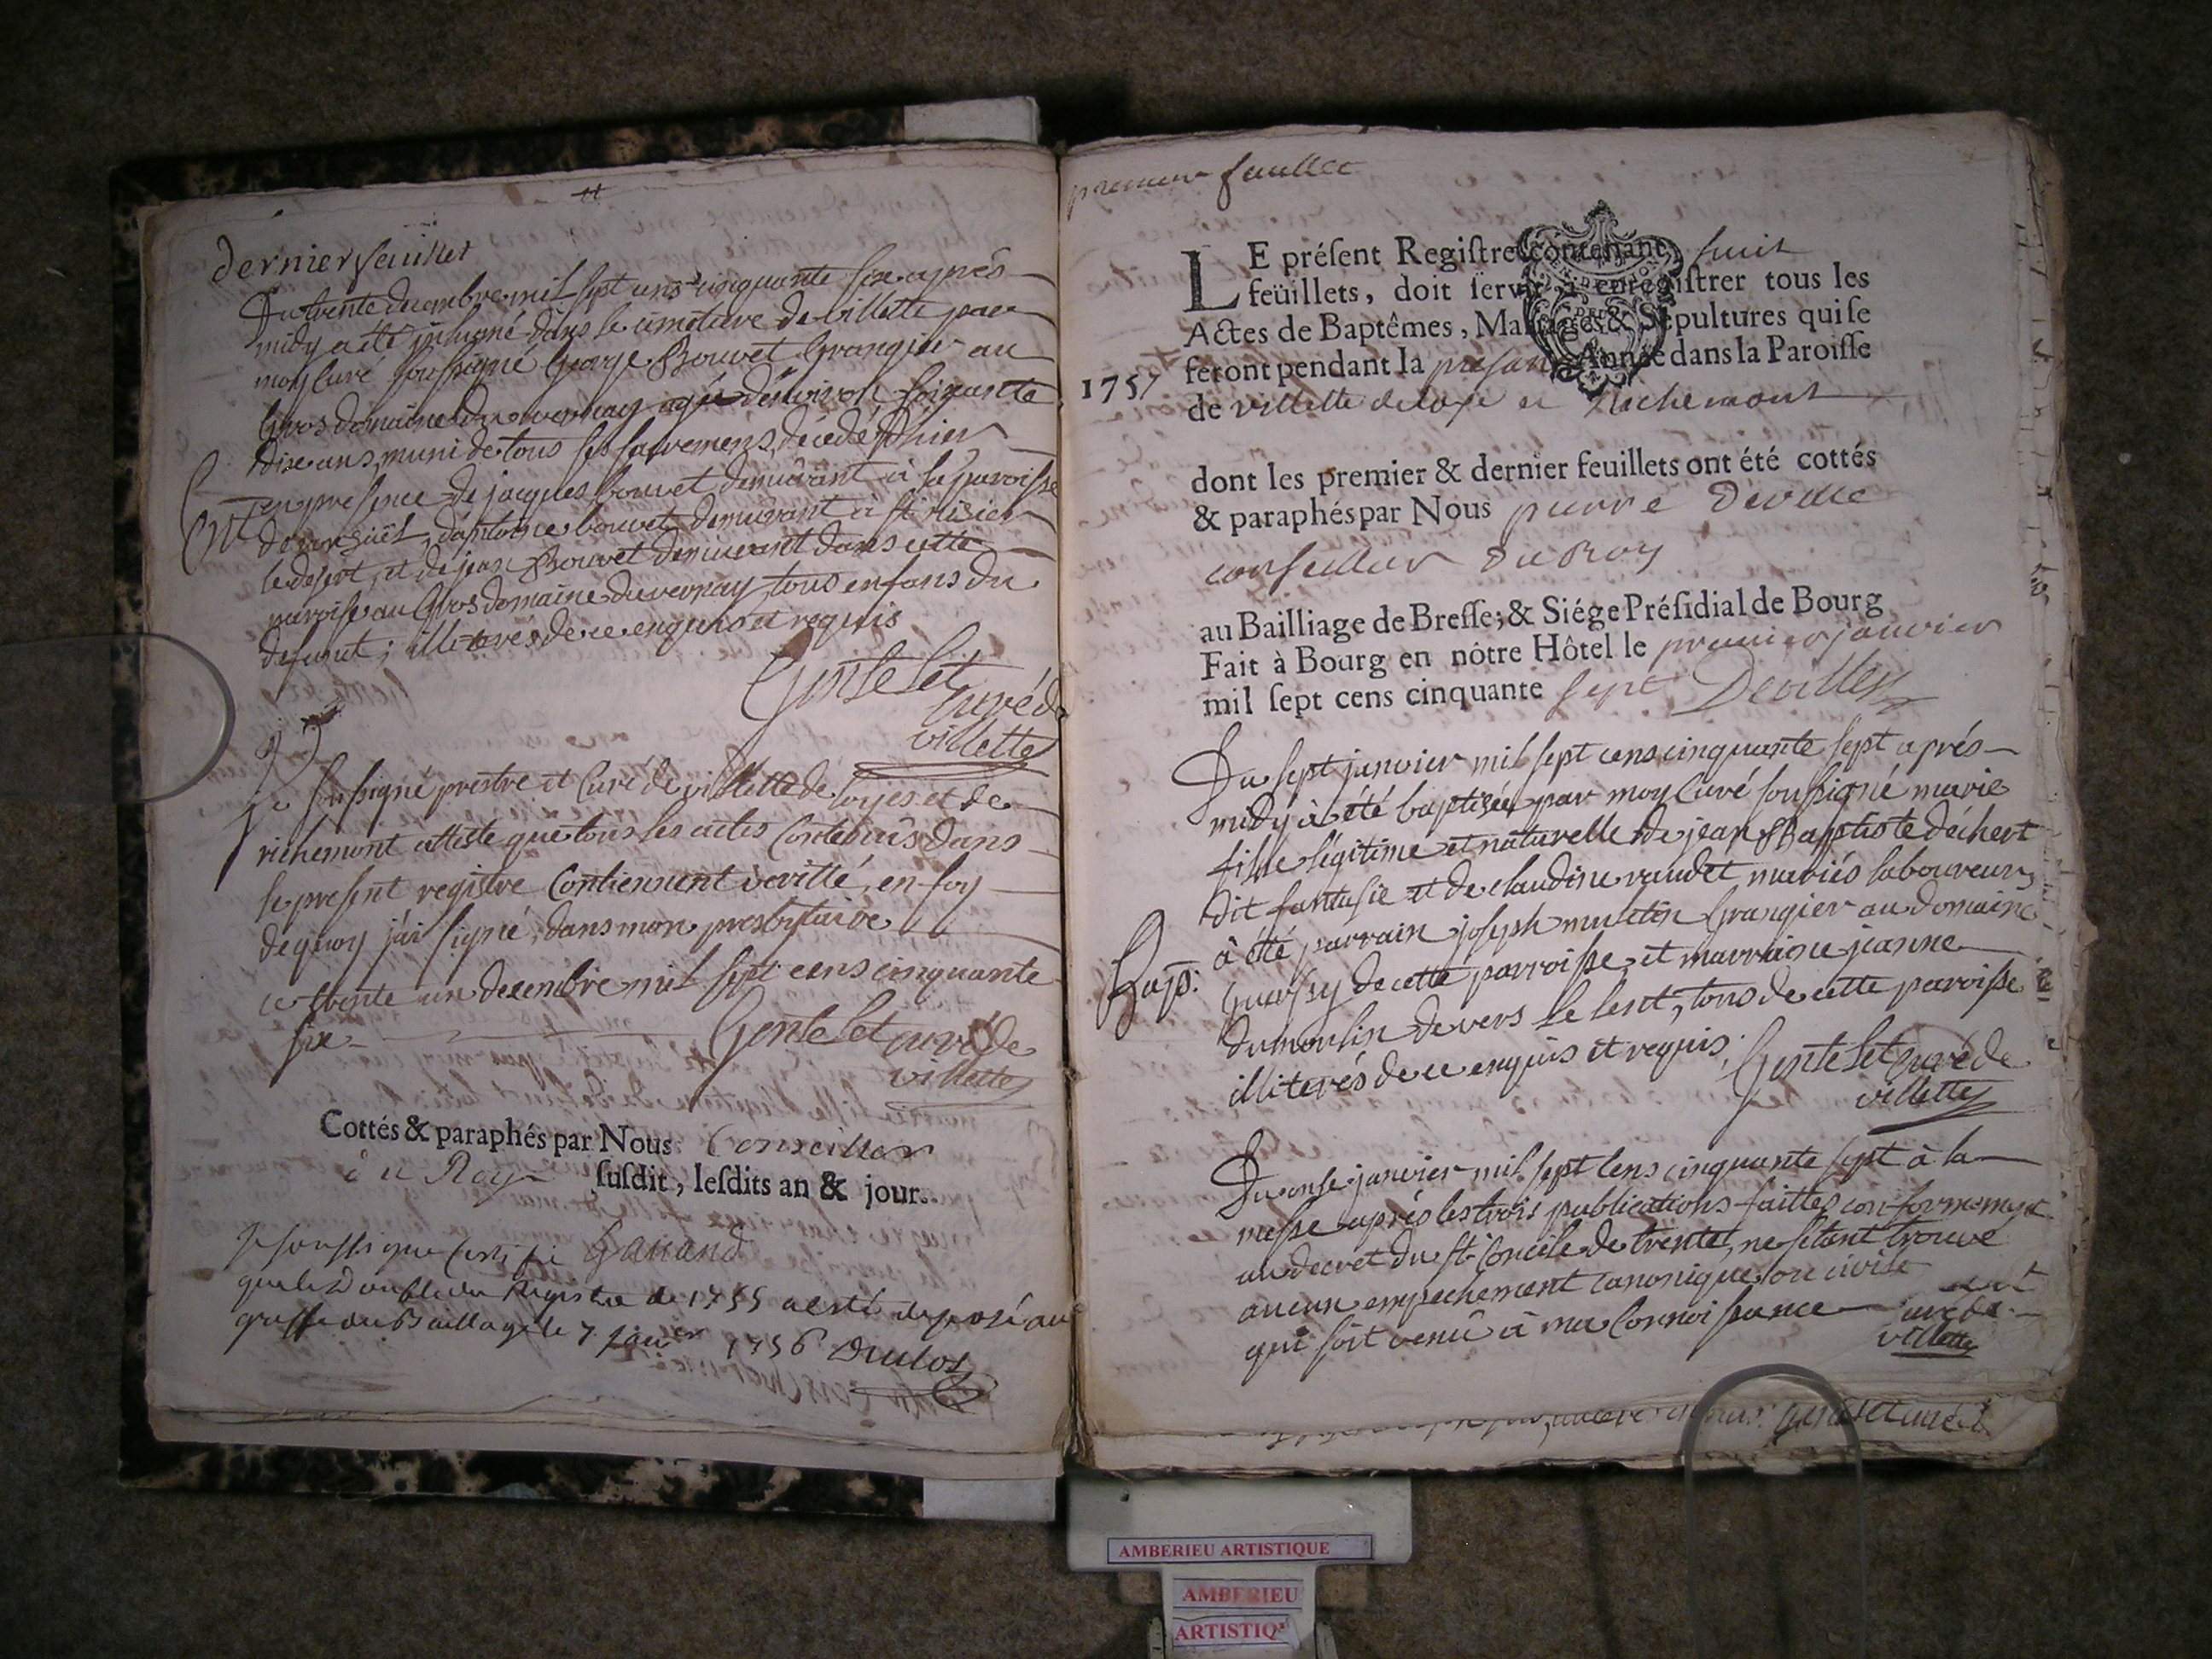 dernier feuillet
Du trente decembre mil sept cens cinquante six après
midy a été inhumé dans le cimetiere de villette par
moy Curé soussigné George Bouvet Granger au
Gros domaine du vernay agé d'environ soixante
dix ans, muni de tous ses sacremens, décedé d'hier
en presence de jacques bouvet demeurant à la paroisse
de, d'antoine bouvet demeurant à st nisier
le desert, et de jean Bouvet demeurant dans cette
paroisse au Gros domaine du vernay, tous enfans du
defunt; illiterés de ce enquis et requis
Gentelet
curé de
villette
je soussigné prestre et Curé de villette de loyes et de
richemont atteste que tous les actes Contenûs dans
le present registre Contiennent verité, en foy
de quoy j'ai signé, dans mon presbytaire
ce trente un decembre mil sept cens cinquante
six
Gentelet curé de
villette
Cottés & paraphés par Nous Conseiller
du Roy ſuſdit, leſdits an & jour.
Je soussigné certifie
que le double du Registre de 1755 a esté deposé au
greffe du Baillage le 7 janer 1756 Duclos
premier feuillet
LE préſent Regiſtre contenant huit
feüillets, doit ſervir à enregiſtrer tous les
Actes de Baptêmes, Mariages & Sépultures qui ſe
feront pendant la présente Année dans la Paroiſſe
1757
de villette de loye et Richemont
dont les premier & dernier feuillets ont été cottés
& paraphés par Nous pierre Deville
conseiller du Roy
au Bailliage de Breſſe; & Siége Préſidial de Bourg
Fait à Bourg en nôtre Hôtel le premier janvier
mil ſept cens cinquante sept Deville
Du sept janvier mil sept cens cinquante sept aprés
midy à été baptisée par moy Curé soussigné marie
fille légitime et naturelle de jean Baptiste déchert
dit fantasie et de claudine vaudet mariés laboureurs
à été parrain joseph Grangier au domaine
Bap:
de cette parroisse, et marraine jeanne
dumoulin devers le lent, tous de cette paroisse
illiterés de ce enquis et requis. Gentelet curé de
villette
Du onse janvier mil sept cens cinquante sept à la
messe aprés les trois publications faittes conformement
au decret du st Concile de trente, ne s'etant trouvé
aucun empechement canonique ou civile
qui soit venû à ma Connoissance curé de
villette